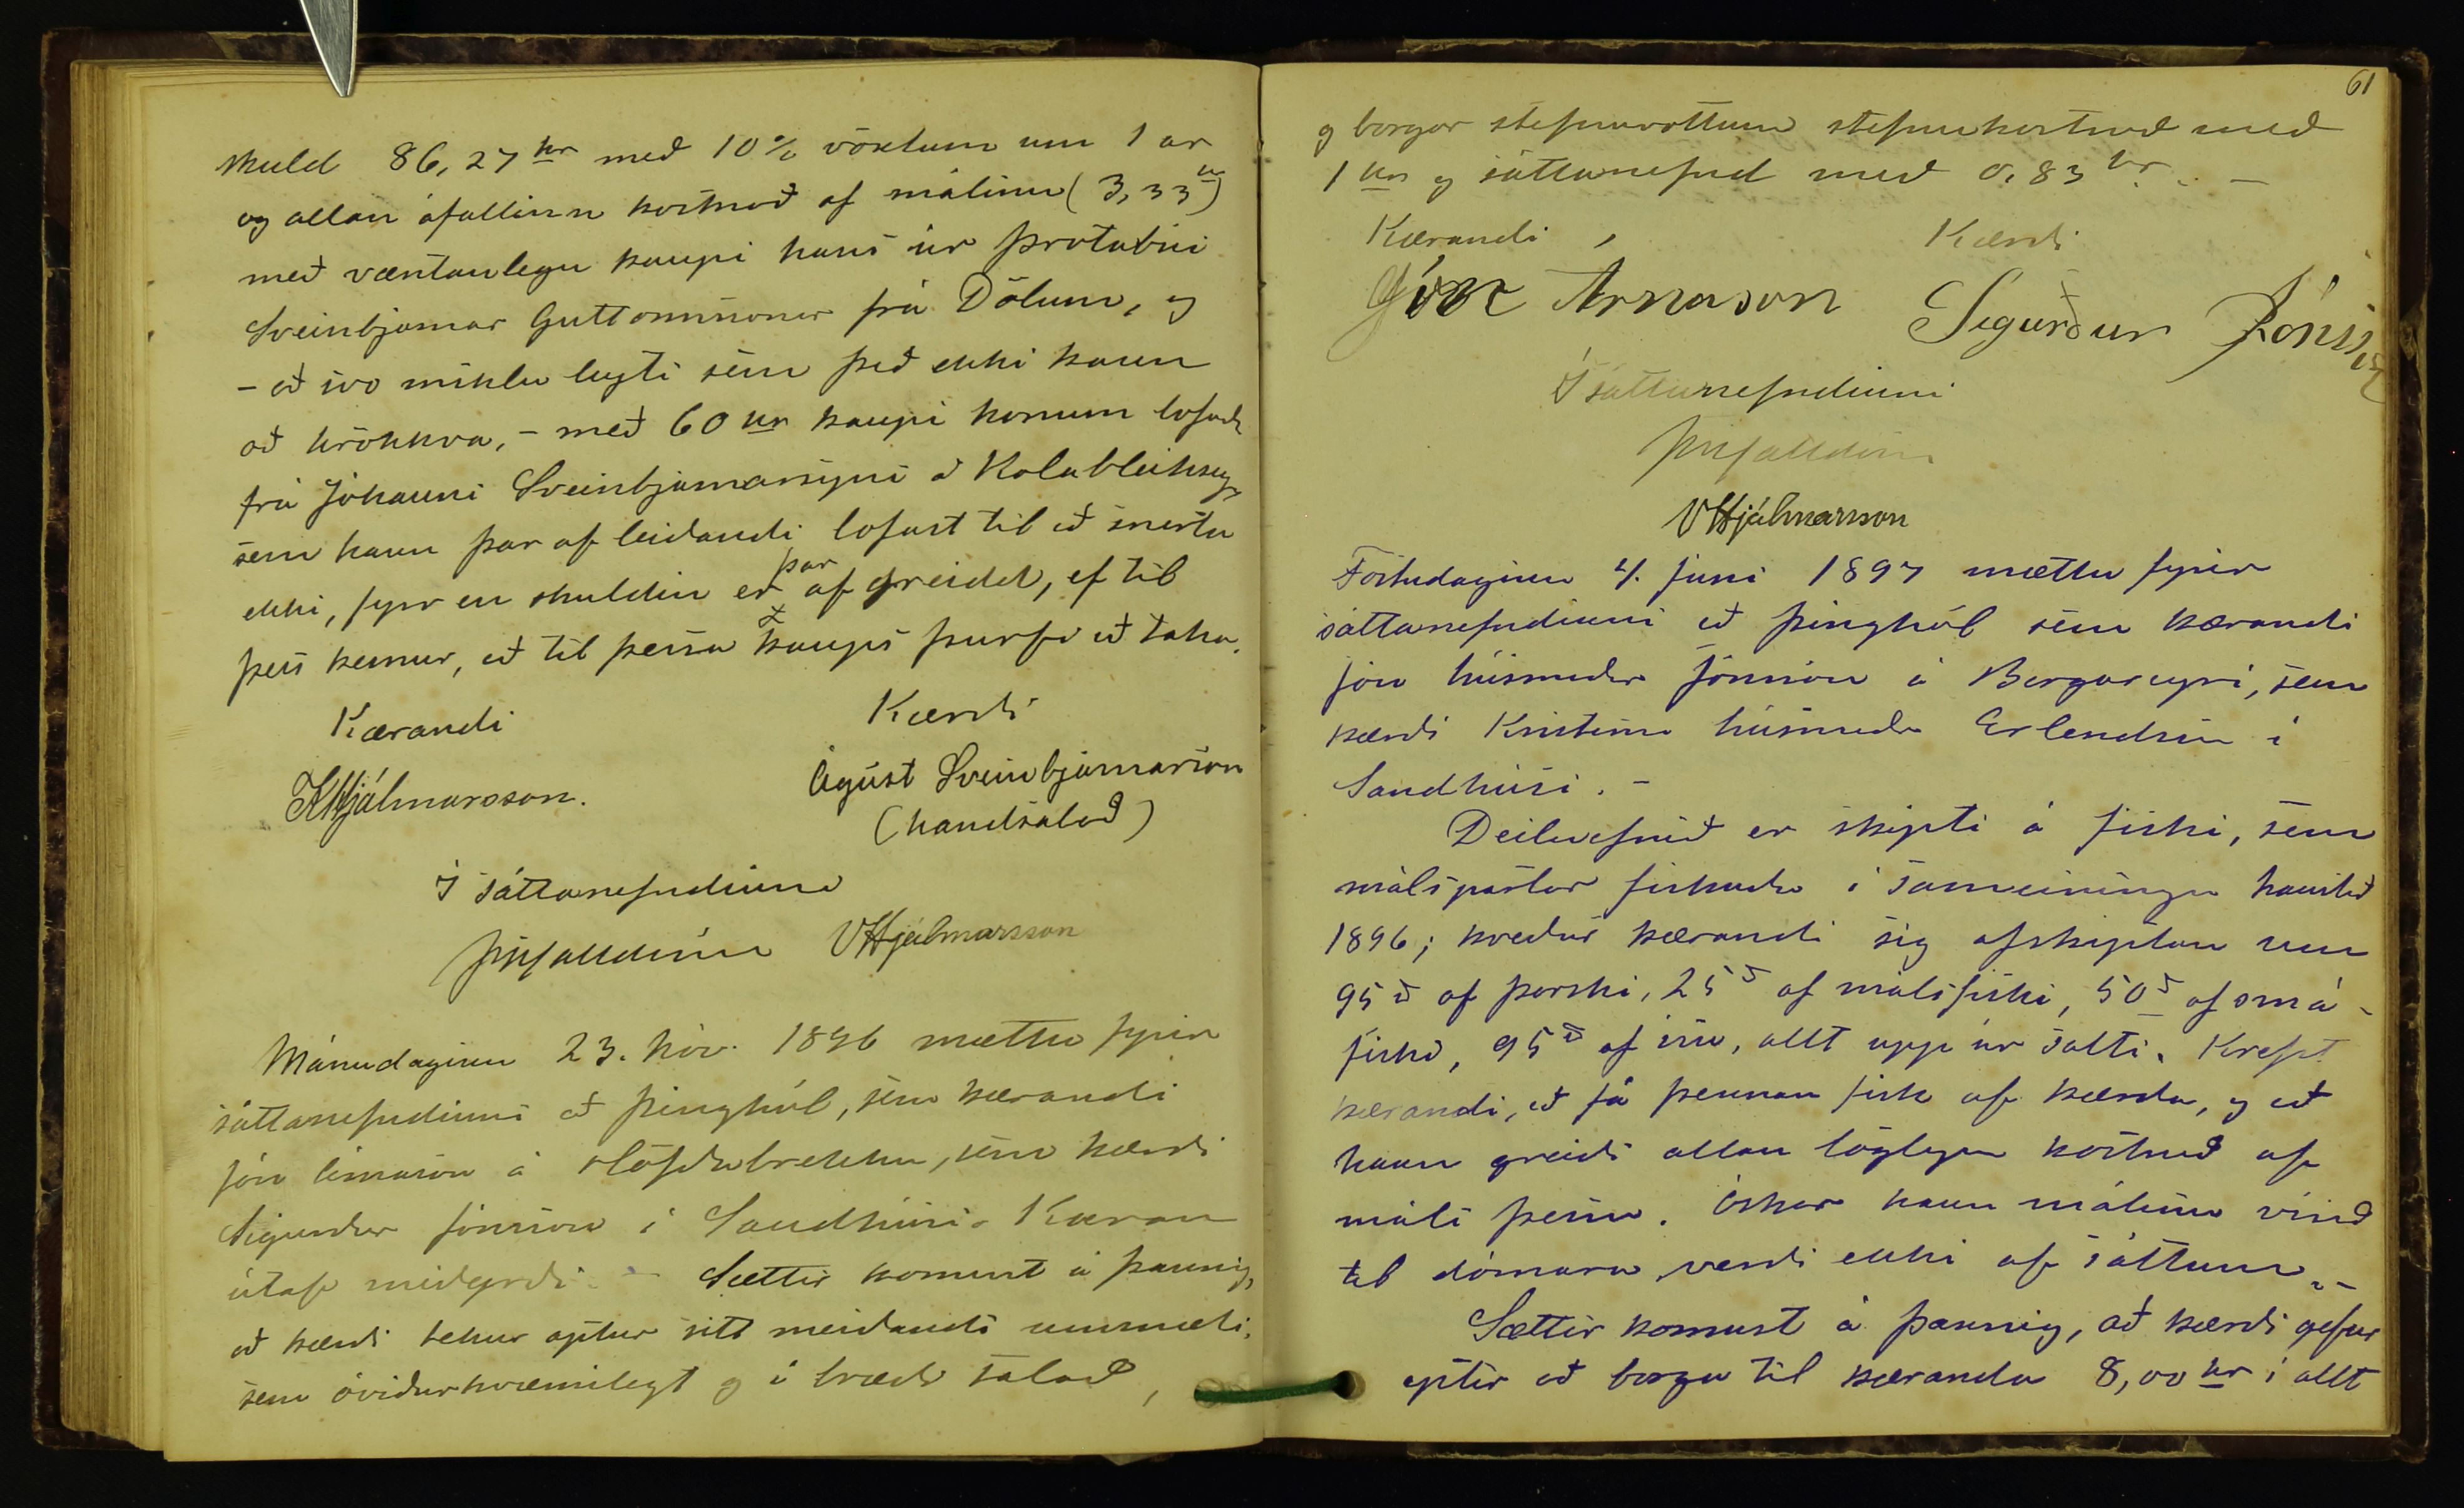 skuld 86,27 kr með 10% vöxtum um 1 ár
og allan áfallinn kostnað af málinu (3,33 kr)
með væntanlegu kaupi hans úr þrotabúi
Sveinbjarnar Guttormssonar frá Dölum, og
- að svo miklu leyti sem það ekki kann
að hrökkva, - með 60 kr kaupi honum lofuðu
frá Jóhanni Sveinbjarnarsyni á Kolableikseyri
sem hann þar af leiðandi lofast til að snerta
ekki, fyrr en skuldin er þar af greidd, ef til
þess kemur, að til þessa kaups þurfi að taka.
Kærandi Kærði
KHjálmarsson. Ágúst Sveinbjarnarson
(handsalað)
Í sáttanefndinni
VHjálmarsson
Mánudaginn 23. nóv. 1896 mættu fyrir
sáttanefndinni að þinghól, sem kærandi
Jón Árnason á Höfðabrekku, sem kærði
Sigurður Jónsson í Sandhúsi. Kæran
útaf meiðyrði. - Sættir komust á þannig,
að kærði tekur aptur sitt meiðandi ummæli,
sem óviðurkvæmilegt og í bræði talað,
61
og borgar stefnuvottum stefnukostnað með
1 kr og sáttanefnd með 0,83 kr. -
Kærandi, Kærði
Jón Árnason Sigurður Jónsson
Í sáttanefndinni
VHjálmarsson
Föstudaginn 4. júní 1897 mættu fyrir
sáttanefndinni að þinghól sem kærandi
Jón húsmaður Jónsson á Borgareyri, sem
kærði Kristinn húsmaður Erlendsson í
Sandhúsi. -
Deiluefnið er skipti á fiski, sem
málspartar fiskuðu í sameiningu haustið
1896; kveður kærandi sig afskiptan um
95 ℔ af þorski, 25 ℔ af málsfiski, 50 ℔ af smá-
fiski, 95 ℔ af ísu, allt upp úr salti. Krefst
kærandi, að fá þennan fisk af kærða, og að
hann greiði allan löglegan kostnað af
máli þessu. Óskar hann málinu vísað
til dómara verði ekki af sáttum. -
Sættir komust á þannig, að kærði gefur
eptir að borga til kæranda 8,00 kr í allt